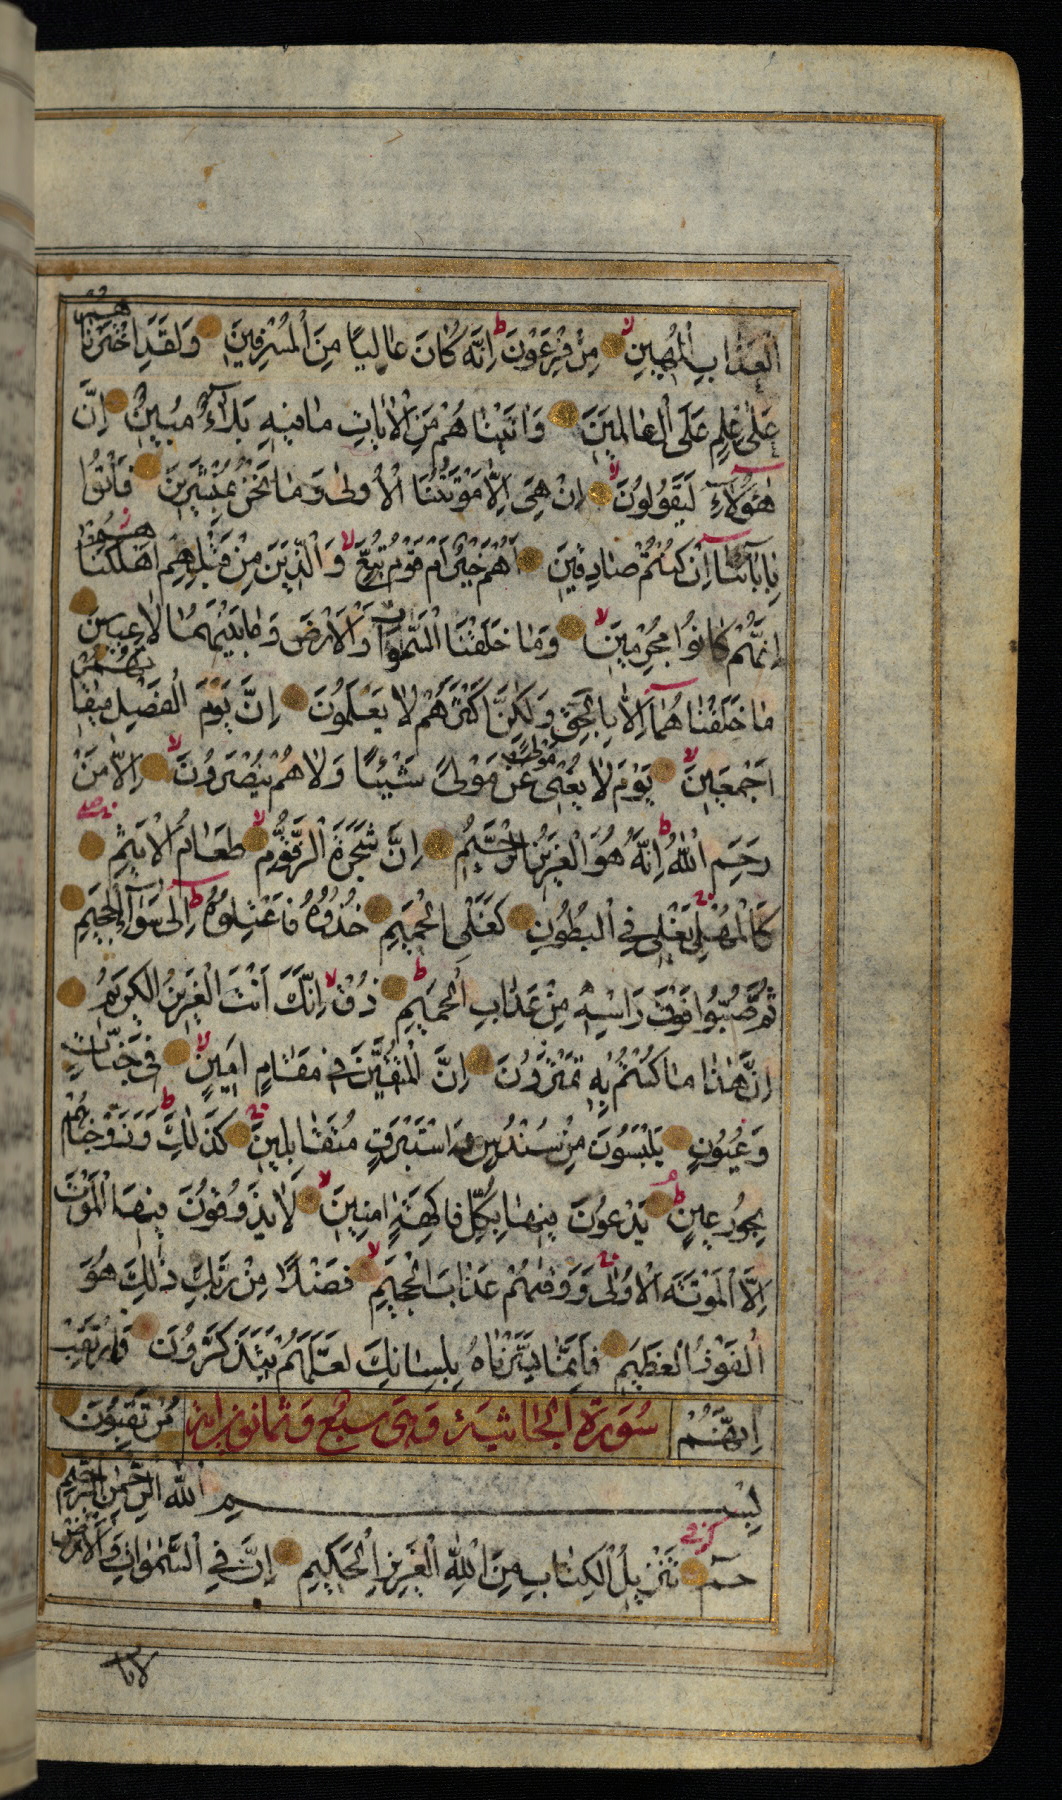 الْعَذَابِ الْمُهِينِ مِنْ فِرْعَوْنَ اِنَّهُ كَانَ عَالِيًا مِنَ الْمُسْرِفِينَ وَلَقَدِ اخْتَرْنَا هُمْ
عَلٰى عِلْمٍ عَلَى الْعَالَمِينَ وَاٰتَيْنَاهُمْ مِنَ الْاٰيَاتِ مَا فِيهِ بَلٰٓؤٌ مُبِينٌ اِنَّ
هٰٓؤُلَآءِ لَيَقُولُونَ اِنْ هِيَ اِلَّا مَوْتَتُنَا الْاُولٰى وَمَا نَحْنُ بِمُنْشَرِينَ فَأْتُوا
بِاٰبَآئِنَآ اِنْ كُنْتُمْ صَادِقِينَ اَهُمْ خَيْرٌ اَمْ قَوْمُ تُبَّعٍ وَالَّذِينَ مِنْ قَبْلِهِمْ اَهْلَكْنَا هُمْ
اِنَّهُمْ كَانُوا مُجْرِمِينَ وَمَا خَلَقْنَا السَّمٰوَاتِ وَالْاَرْضَ وَمَا بَيْنَهُمَا لَاعِبِينَ
مَا خَلَقْنَاهُمَآ اِلَّا بِالْحَقِّ وَلٰكِنَّ اَكْثَرَهُمْ لَا يَعْلَمُونَ اِنَّ يَوْمَ الْفَصْلِ مِيقَا تُهُمْ
اَجْمَعِينَ يَوْمَ لَا يُغْنِى مَوْلًى عَنْ مَوْلًى شَيْئًا وَلَا هُمْ يُنْصَرُونَ اِلَّا مَنْ
رَحِمَ اللّٰهُ اِنَّهُ هُوَ الْعَزِيزُ الرَّحِيمُ اِنَّ شَجَرَةَ الزَّقُّومِ طَعَامُ الْاَثِيمِ
كَالْمُهْلِ يَغْلِى فِى الْبُطُونِ كَغَلْىِ الْحَمِيمِ خُذُوهُ فَاعْتِلُوهُ اِلٰى سَوَآءِ الْجَحِيمِ
ثُمَّ صُبُّوا فَوْقَ رَاْسِهِ مِنْ عَذَابِ الْحَمِيمِ ذُقْ اِنَّكَ اَنْتَ الْعَزِيزُ الْكَرِيمُ
اِنَّ هٰذَا مَا كُنْتُمْ بِهِ تَمْتَرُونَ اِنَّ الْمُتَّقِينَ فِى مَقَامٍ اَمِينٍ فِى جَنَّاتٍ
وَعُيُونٍ يَلْبَسُونَ مِنْ سُنْدُسٍ وَاِسْتَبْرَقٍ مُتَقَابِلِينَ كَذٰلِكَ وَزَوَّجْنَاهُمْ
بِحُورٍ عِينٍ يَدْعُونَ فِيهَا بِكُلِّ فَاكِهَةٍ اٰمِنِينَ لَا يَذُوقُونَ فِيهَا الْمَوْتَ
اِلَّا الْمَوْتَةَ الْاُولٰى وَوَقٰيهُمْ عَذَابَ الْجَحِيمِ فَضْلًا مِنْ رَبِّكَ ذٰلِكَ هُوَ
الْفَوْزُ الْعَظِيمُ فَاِنَّمَا يَسَّرْنَاهُ بِلِسَانِكَ لَعَلَّهُمْ يَتَذَكَّرُونَ فَارْتَقِبْ
اِنَّهُمْ مُرْتَقِبُونَ
سُورَةُ الْجَاثِيَةِ وَهِىَ سَبْعٌ وَثَمَانُونَ
بِسْمِ اللّٰهِ الرَّحْمٰنِ الرَّحِيمِ
حٰمٓ تَنْزِيلُ الْكِتَابِ مِنَ اللّٰهِ الْعَزِيزِ الْحَكِيمِ اِنَّ فِى السَّمٰوَاتِ وَالْاَرْضِ
لَاٰيَا